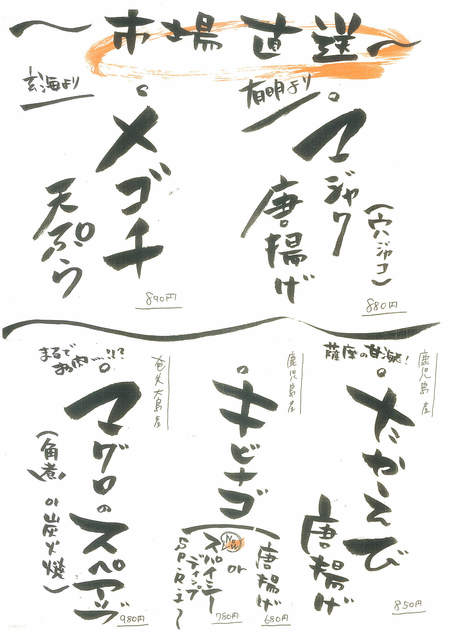 〜市場直送〜
有明より
マジャク
唐揚げ
(ウバジャコ)
880円
玄海より
メゴチ
天ぷら
890円
鹿児島産
薩摩の甘海老!
たかえび
唐揚げ
850円
鹿児島産
キビナゴ
唐揚げ
680円
or
New
スパイシー
ディップ
780円
奄美大島産
まるでお肉…!!?
マグロのスペアリブ
(角煮 or 炭火焼)
980円